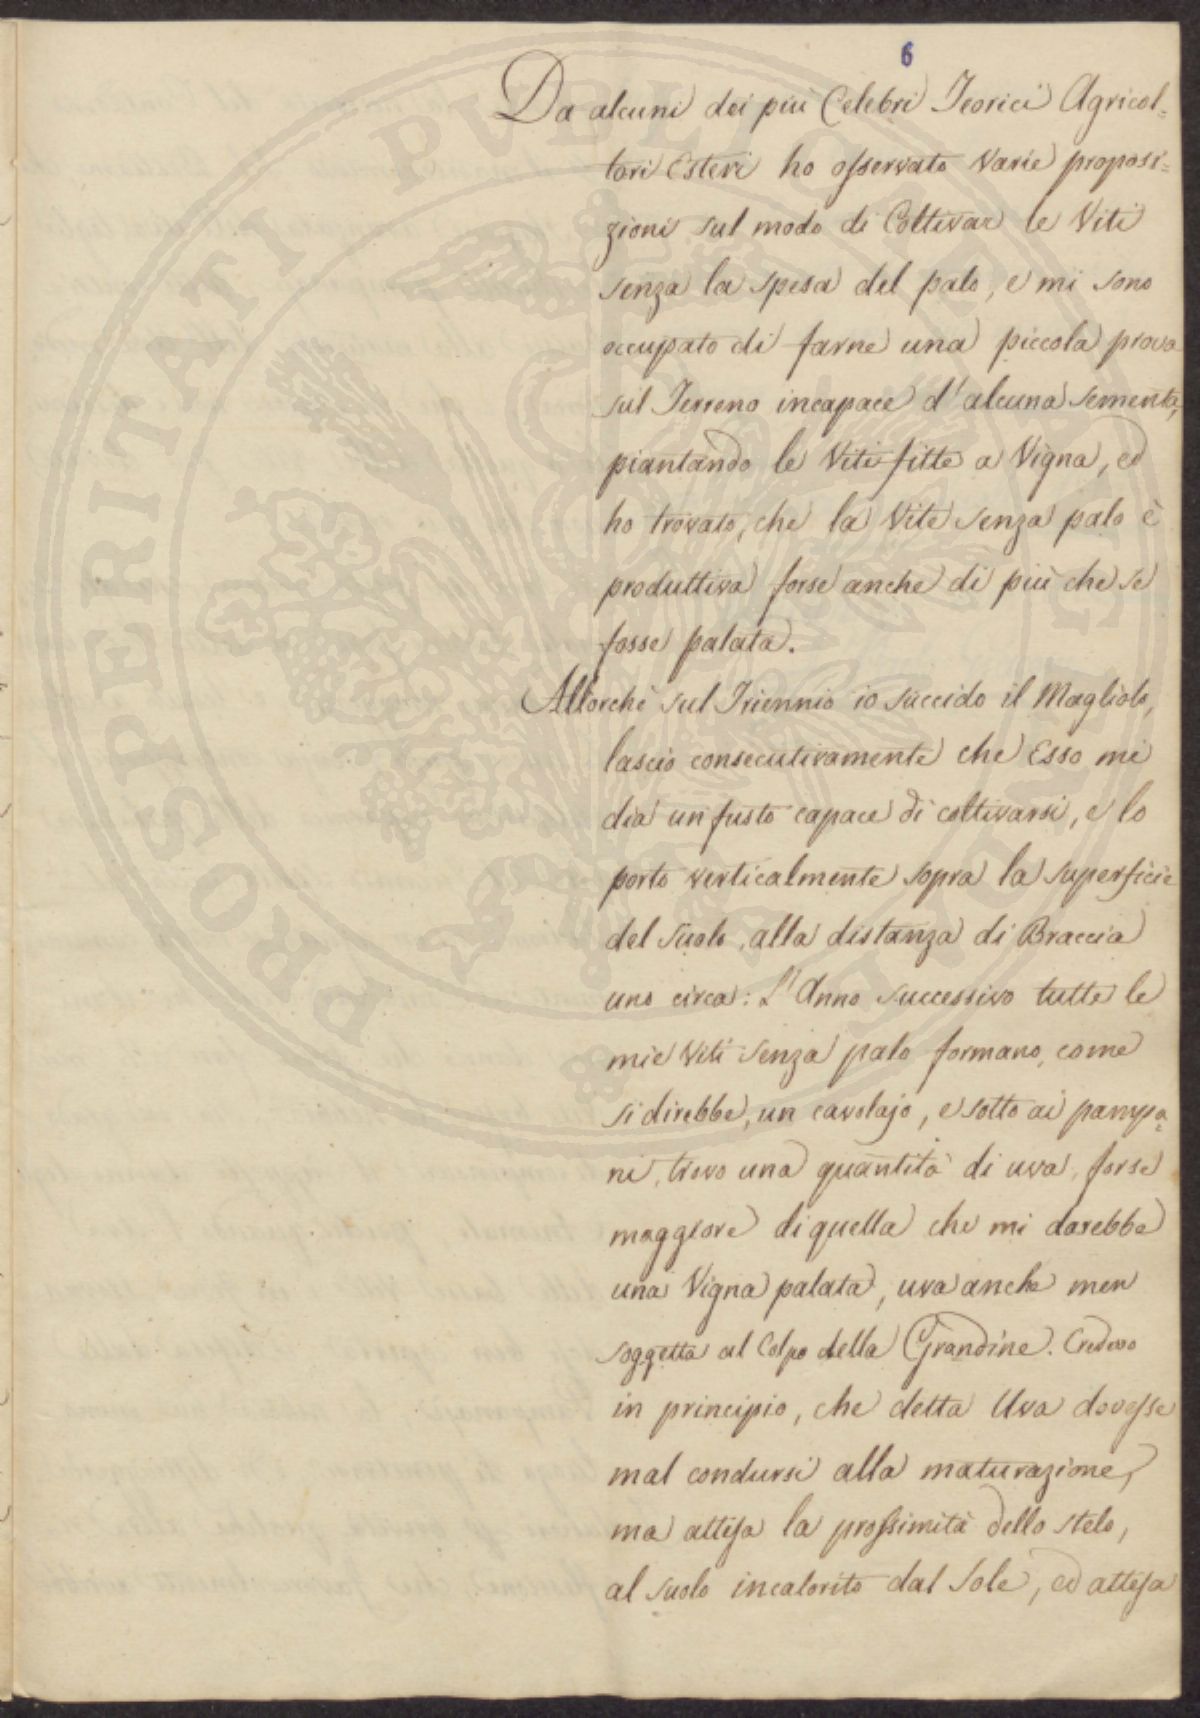 6
Da alcuni dei più Celebri Teorici Agricol-
tori Esteri ho osservato varie proposi-
zioni sul modo di Coltivar le Viti
senza la spesa del palo, e mi sono
occupato di farne una piccola prova
sul Terreno incapace d'alcuna sementa,
piantando le Viti fitte a Vigna, ed
ho trovato, che la Vite senza palo è
produttiva forse anche di più che se
fosse palata.
Allorchè sul Triennio io succido il Magliolo,
lascio consecutivamente che Esso mi
dia un fusto capace di coltivarsi, e lo
porto verticalmente sopra la superficie
del suolo, alla distanza di Braccia
uno circa: L'Anno successivo tutte le
mie Viti senza palo formano, come
si direbbe, un cavolajo, e sotto ai pampa-
ni, trovo una quantità di uva, forse
maggiore di quella che mi darebbe
una Vigna palata, uva anche men
soggetta al Colpo della Grandine. Credevo
in principio, che detta Uva dovesse
mal condursi alla maturazione,
ma attesa la prossimità dello stelo,
al suolo incalorito dal Sole, ed attesa
PROSPERITATI PUBLICAE AUGENDAE